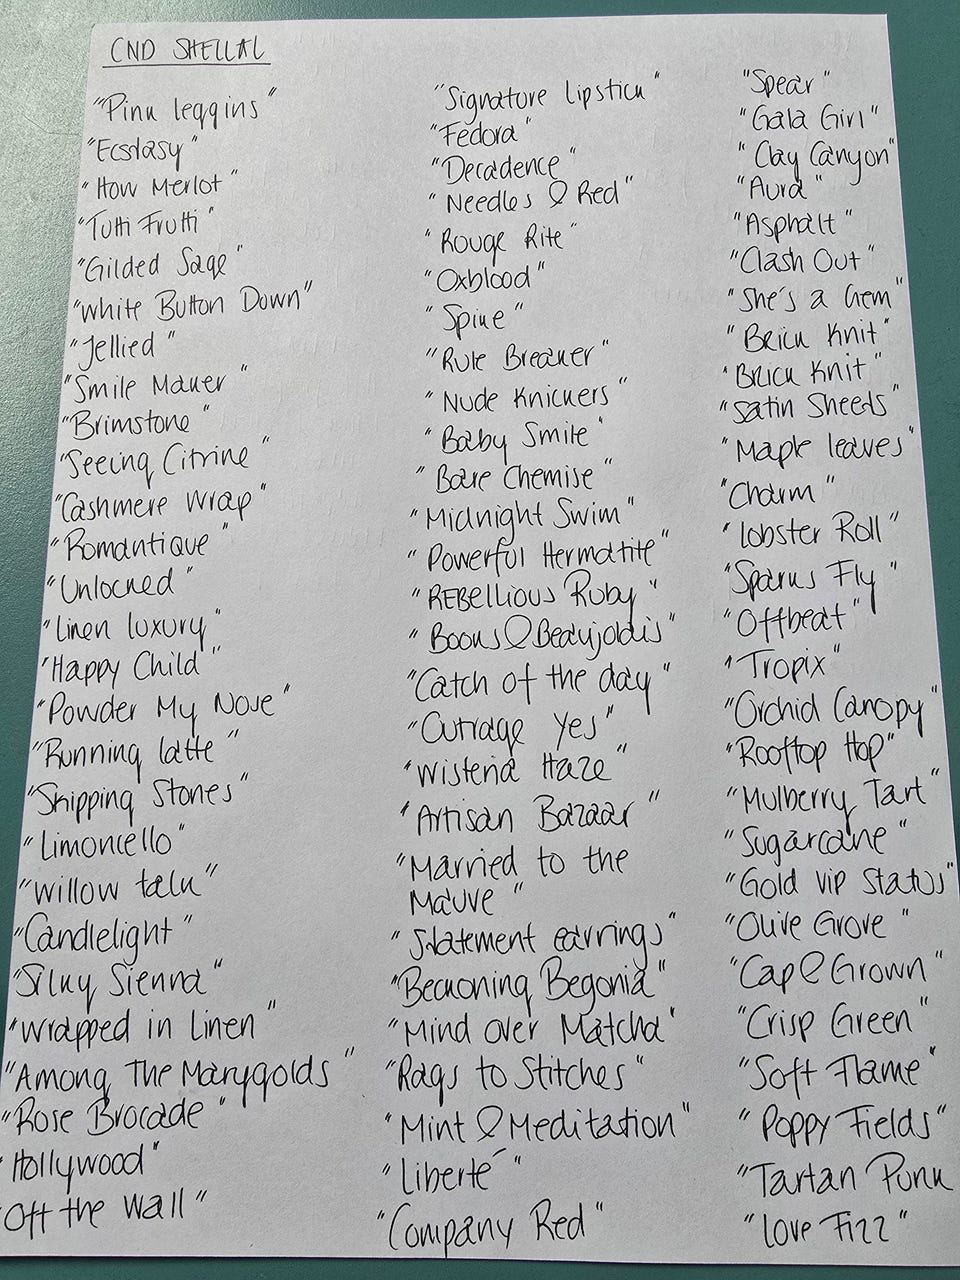 CND SHELLAC
"Pink leggins"
"Ecstasy"
"How Merlot"
"Tutti Frutti"
"Gilded Sage"
"White Button Down"
"Jellied"
"Smile Maker"
"Brimstone"
"Seeing Citrine"
"Cashmere Wrap"
"Romantique"
"Unlocked"
"Linen luxury"
"Happy Child"
"Powder My Nose"
"Running latte"
"Skipping Stones"
"Limoncello"
"Willow talk"
"Candlelight"
"Silky Sienna"
"Wrapped in Linen"
"Among The Marygolds"
"Rose Brocade"
"Hollywood"
"Off the Wall"
"Signature lipstick"
"Fedora"
"Decadence"
"Needles & Red"
"Rouge Rite"
"Oxblood"
"Spike"
"Rule Breaker"
"Nude Knickers"
"Baby Smile"
"Bare Chemise"
"Midnight Swim"
"Powerful Hermatite"
"REBellious Ruby"
"Books & Beaujolais"
"Catch of the day"
"Outrage Yes"
"Wisteria Haze"
"Artisan Bazaar"
"Married to the
Mauve"
"Statement earrings"
"Beckoning Begonia"
"Mind over Matcha"
"Rags to Stitches"
"Mint & Meditation"
"Liberté"
"Company Red"
"Spear"
"Gala Girl"
"Clay Canyon"
"Aura"
"Asphalt"
"Clash Out"
"She's a Gem"
"Brick Knit"
"Brick Knit"
"Satin Sheets"
"Maple leaves"
"Charm"
"Lobster Roll"
"Sparks Fly"
"Offbeat"
"Tropix"
"Orchid Canopy"
"Rooftop Hop"
"Mulberry Tart"
"Sugarcane"
"Gold vip Status"
"Olive Grove"
"Cap & Grown"
"Crisp Green"
"Soft Flame"
"Poppy Fields"
"Tartan Punk
"Love Fizz"